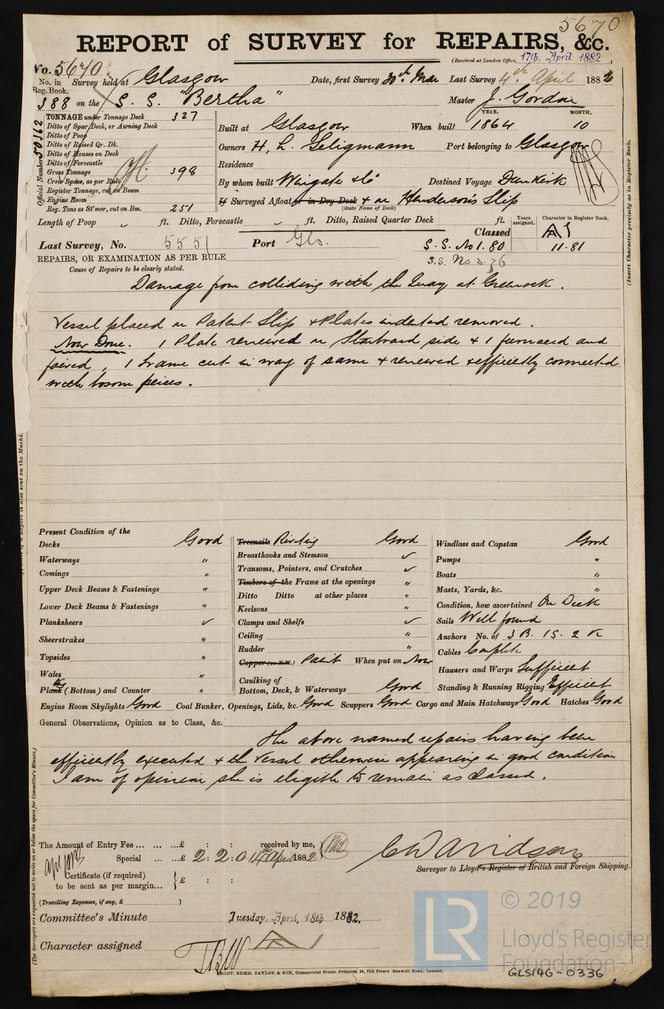 5670
REPORT of SURVEY for REPAIRS, &c.
(Received at London Office, 17th April 1882
No. 5670
No. in Reg. Book. Survey held at Glasgow Date, first Survey 30th Mar Last Survey 4th April 1882
388 on the S. S. "Bertha" Master J. Gordon
TONNAGE under Tonnage Deck 327
Ditto of Spar Deck, or Awning Deck
Ditto of Poop
Ditto of Raised Qr. Dk.
Ditto of Houses on Deck
Ditto of Forecastle
Gross Tonnage 398
Crew Space, as per Rule
Register Tonnage, cut on Beam
Engine Room
Reg. Tons as St'mer, cut on Bm. 251
Official Number 50162
YEAR. MONTH.
Built at Glasgow When built 1864 10
Owners H. L. Seligmann Port belonging to Glasgow
Residence
By whom built Wingate & Co Destined Voyage Dunkirk
If Surveyed Afloat or in Dry Dock & on Henderson's Slip
(State Name of Dock)
Length of Poop ft. Ditto, Forecastle ft. Ditto, Raised Quarter Deck ft.
Years assigned. Character in Register Book.
Classed A1
Last Survey, No. 5551 Port Glo. S.S. No 1.80 11.81
S.S. No 3.76
REPAIRS, OR EXAMINATION AS PER RULE
Cause of Repairs to be clearly stated.
(Insert Character precisely as in Register Book.
Damage from colliding with the Quay at Greenock.
Vessel placed on Patent Slip & Plates indented removed.
Now Done. 1 Plate renewed on Starboard side & 1 furnaced and
faired, 1 frame cut in way of same & renewed & efficiently connected
with bosom peices.
Present Condition of the
Decks Good
Waterways "
Comings "
Upper Deck Beams & Fastenings "
Lower Deck Beams & Fastenings "
Planksheers
Sheerstrakes "
Topsides "
Wales "
Plank (Bottom) and Counter "
Treenails Riveting Good
Breasthooks and Stemson
Transoms, Pointers, and Crutches
Timbers of the Frame at the openings "
Ditto Ditto at other places "
Keelsons "
Clamps and Shelfs
Ceiling "
Rudder "
Copper Paint When put on Now
Caulking of
Bottom, Deck, & Waterways Good
Windlass and Capstan Good
Pumps "
Boats "
Masts, Yards, &c. "
Condition, how ascertained On Deck
Sails Well found
Anchors No. of 3 B. 1 S. 2 K
Cables Complete
Hawsers and Warps Sufficient
Standing & Running Rigging Efficient
Engine Room Skylights Good Coal Bunker, Openings, Lids, &c. Good Scuppers Good Cargo and Main Hatchways Good Hatches Good
General Observations, Opinion as to Class, &c.
The above named repairs having been
efficiently executed & the vessel otherwise appearing in good condition
I am of opinion she is eligible to remain as Classed.
The Amount of Entry Fee ... ... ...£ : : received by me,
Special ... ...£ 2 : 2 : 0 14th April 1882
Certificate (if required) to be sent as per margin... £ : :
(Travelling Expenses, if any, £ )
C Davidson
Surveyor to Lloyd's Register of British and Foreign Shipping.
Committee's Minute Tuesday, April, 18th 1882.
Character assigned A 1
FRONT. EDMD. TAYLOR & SON, Commercial Steam Printers, 18, Old Street Goswell Road, London.
LR
© 2019
Lloyd's Register
Foundation
GLS146-0336